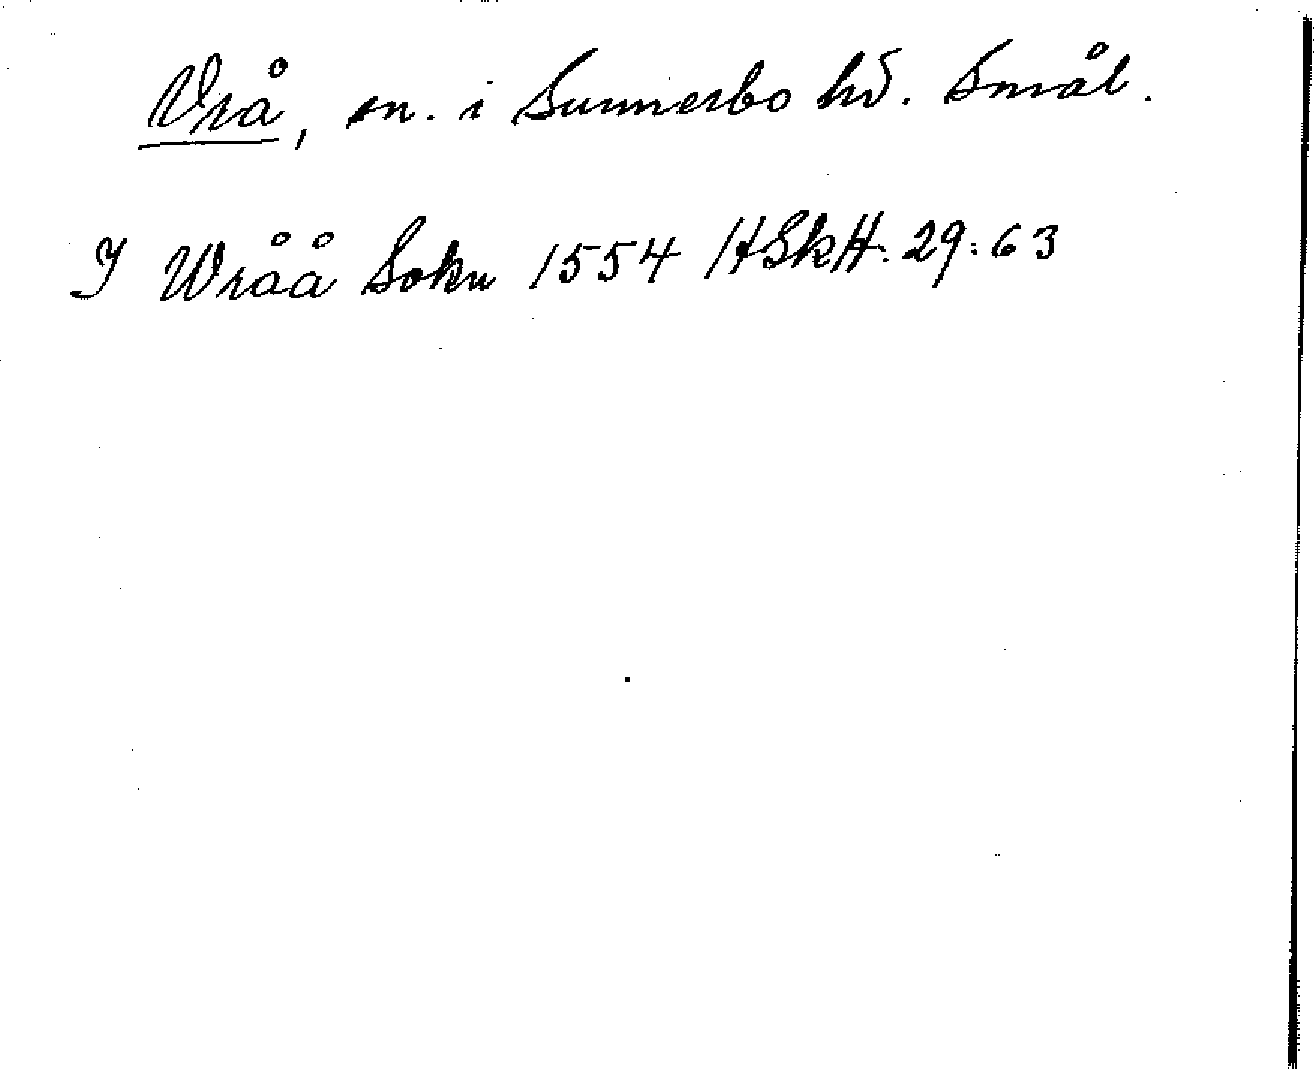 Vrå, sn. i Sunnerbo hd. Smål.
I Wråå Sokn 1554 HSkH. 29:63